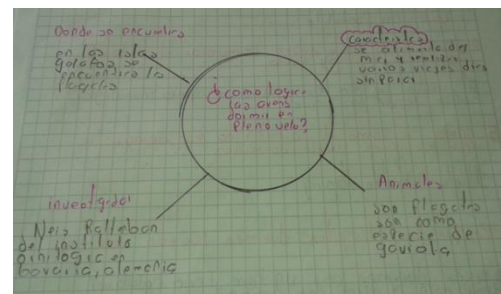 Donde se encuentra
en las islas
se
encuentra la
caracteristica
se alimenta del
mar y
varios viajes dias
sin parar
¿como logra
las aves
dormir en
pleno vuelo?
investigador
Neis Rattenbon
del instituto
en
bavaria, alemania
Animales
son
son como
especie de
gaviota